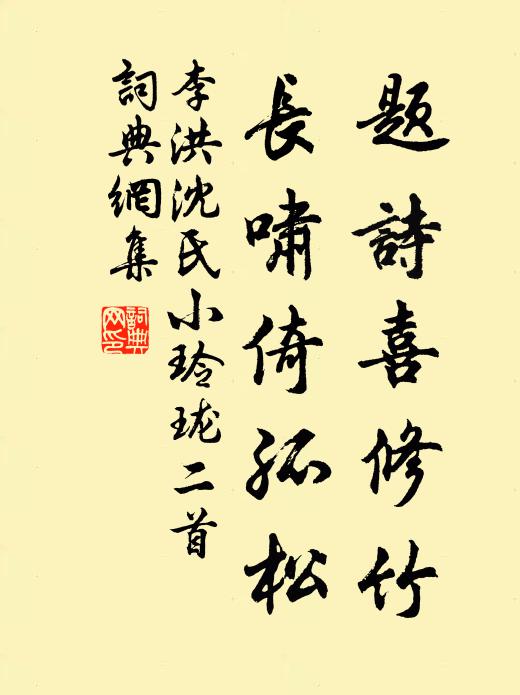 題詩喜修竹
長嘯倚孤松
李洪沈氏小玲珑二首
詞典網集
詞典网印